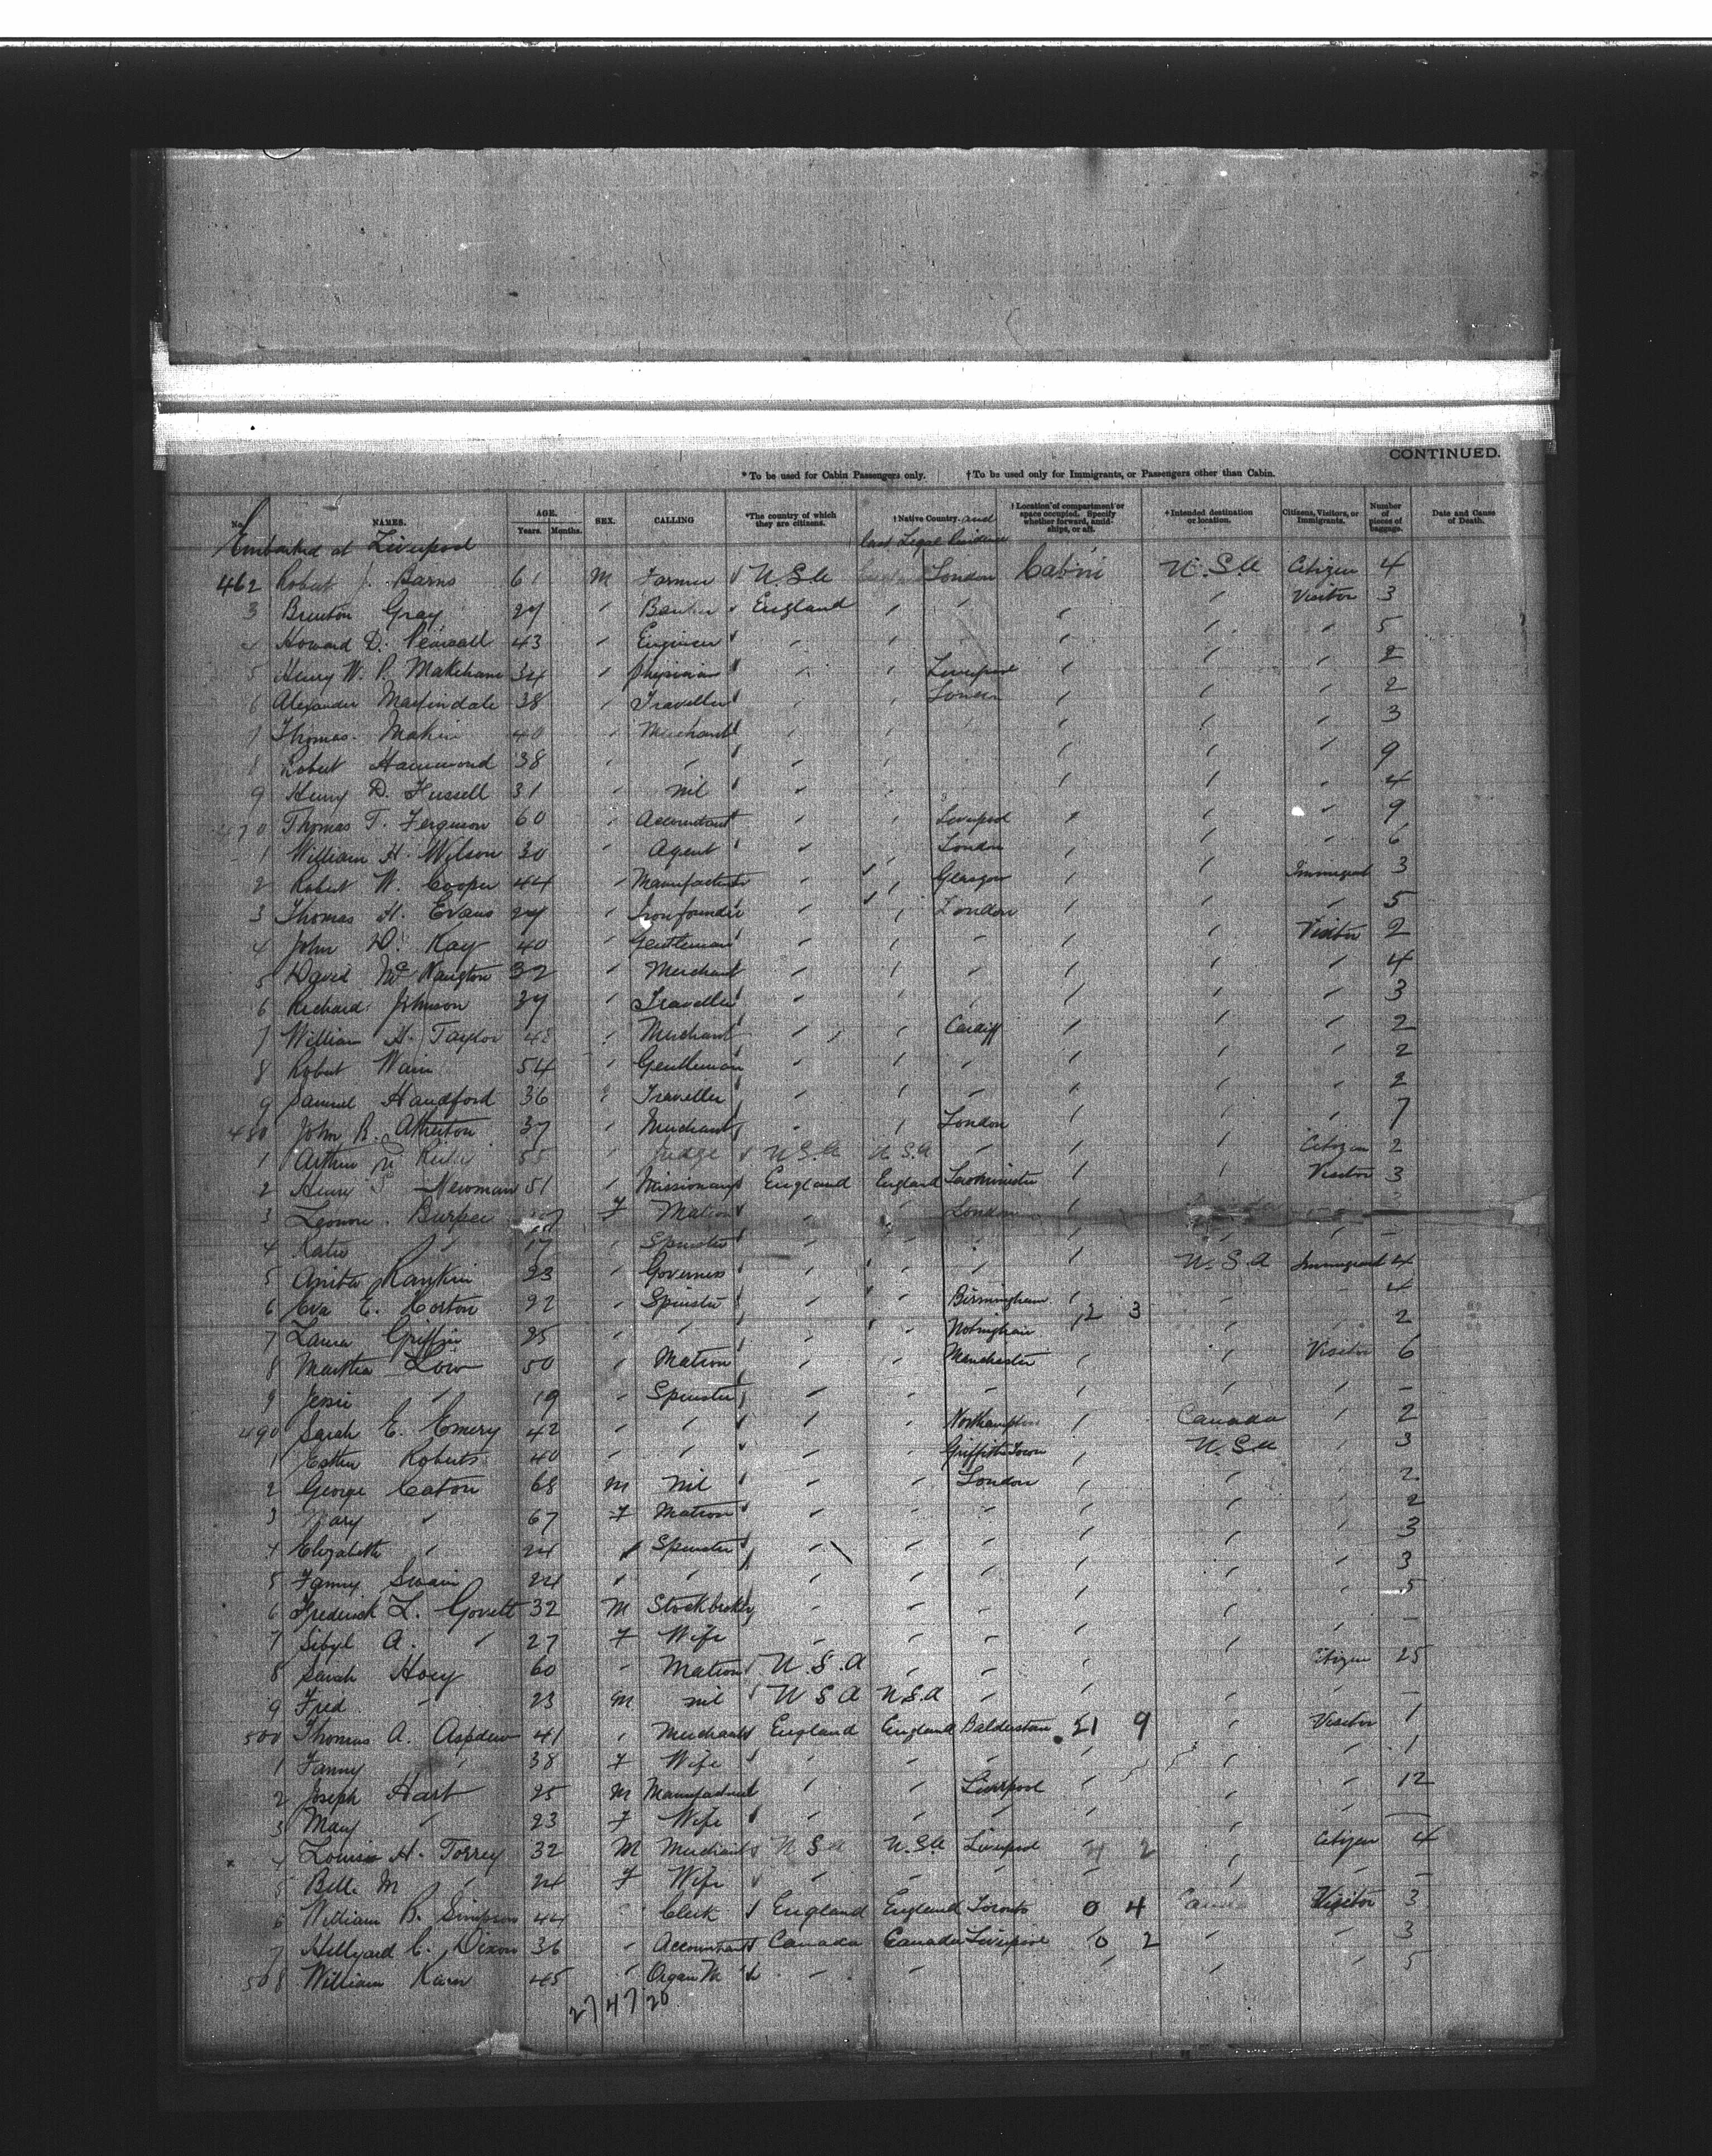 CONTINUED.
* To be used for Cabin Passengers only. † To be used only for Immigrants, or Passengers other than Cabin.
No. NAMES. AGE. Years. Months. SEX. CALLING *The country of which they are citizens. †Native Country. and last Legal Residence †Location of compartment or space occupied. Specify whether forward, amidships, or aft. †Intended destination or location. Citizens, Visitors, or Immigrants. Number of pieces of baggage. Date and Cause of Death.
Embarked at Liverpool
462 Robert J. Barns 61 M Farmer U.S.A London Cabin U.S.A Citizen 4
3 Brenton Gray 27 " Banker England " " " " Visitor 3
4 Howard D. 43 " Engineer " " " " " 5
5 Henry W. P. Makeham 34 " Physician " " Liverpool " " " 2
6 Alexander 38 " Traveller " " London " " " 2
7 Thomas 40 " Merchant " " " " " 3
8 Robert Hammond 38 " " " " " " " 9
9 Henry D. Fussell 31 " nil " " " " " 4
470 Thomas T. Ferguson 60 " Accountant " " Liverpool " " " 9
1 William H. Wilson 30 " Agent " " London " " " 6
2 Robert W. Cooper 44 " Manufacturer " " Glasgow " " Immigrant 3
3 Thomas H. Evans 27 " Ironfounder " " London " " " 5
4 John D. Kay 40 " Gentleman " " " " " Visitor 2
5 David 32 " Merchant " " " " " " 4
6 Richard Johnson 37 " Traveller " " " " " " 3
7 William H. Taylor 48 " Merchant " " Cardiff " " " 2
8 Robert Wain 54 " Gentleman " " " " " " 2
9 Samuel Handford 36 " Traveller " " " " " 2
480 John R. Atherton 37 " Merchant " " London " " " 7
1 Arthur 55 " Judge U.S.A U.S.A " " " Citizen 2
2 Henry S. Newman 51 " Missionary England England Leominster " " Visitor 3
3 Leonore Burpee F Matron " " London "
4 Katie " 17 " Spinster " " " " " " -
5 Rankin 23 " Governess " " " " U.S.A Immigrant 4
6 Eva E. Horton 22 " Spinster " " Birmingham " 2 3 " " 4
7 Laura Griffin 25 " " " " " " " 2
8 Martha Low 50 " Matron " " Manchester " " Visitor 6
9 Jessie " 19 " Spinster " " " " " " -
490 Sarah E. Emery 42 " " " " Northampton " Canada " 2
1 Esther Roberts 40 " " " " Griffiths Town " U.S.A " 3
2 George Caton 68 M nil " " London " " " 2
3 Mary " 67 F Matron " " " " " " 2
4 Elizabeth " 24 " Spinster " " " " " " 3
5 Fanny Swain 24 " " " " " " " " 3
6 Frederick L. Govett 32 M Stockbroker " " " " " " 5
7 Sibyl A. " 27 F Wife " " " " " " -
8 Sarah Hoey 60 " Matron U.S.A " " " " Citizen 25
9 Fred " 23 M nil U S A U.S.A " " " " -
500 Thomas A. Aspden 41 " Merchant England England Balderstone 21 9 " Visitor 1
1 Fanny " 38 F Wife " " " " " " 1
2 Joseph Hart 25 M Manufacturer " " Liverpool " " " 12
3 May " 23 F Wife " " " " " " -
4 Louis H. Torrey 32 M Merchant U S A U.S.A Liverpool 2 " Citizen 4
5 Belle M " 24 F Wife " " " " " -
6 William B. Simpson 44 Clerk England England Toronto 0 4 Visitor 3
7 Hillyard C. Dixon 36 " Accountant Canada Canada Liverpool 0 2 " " 3
508 William 45 " Organ M " " " " " 5
27/47/20